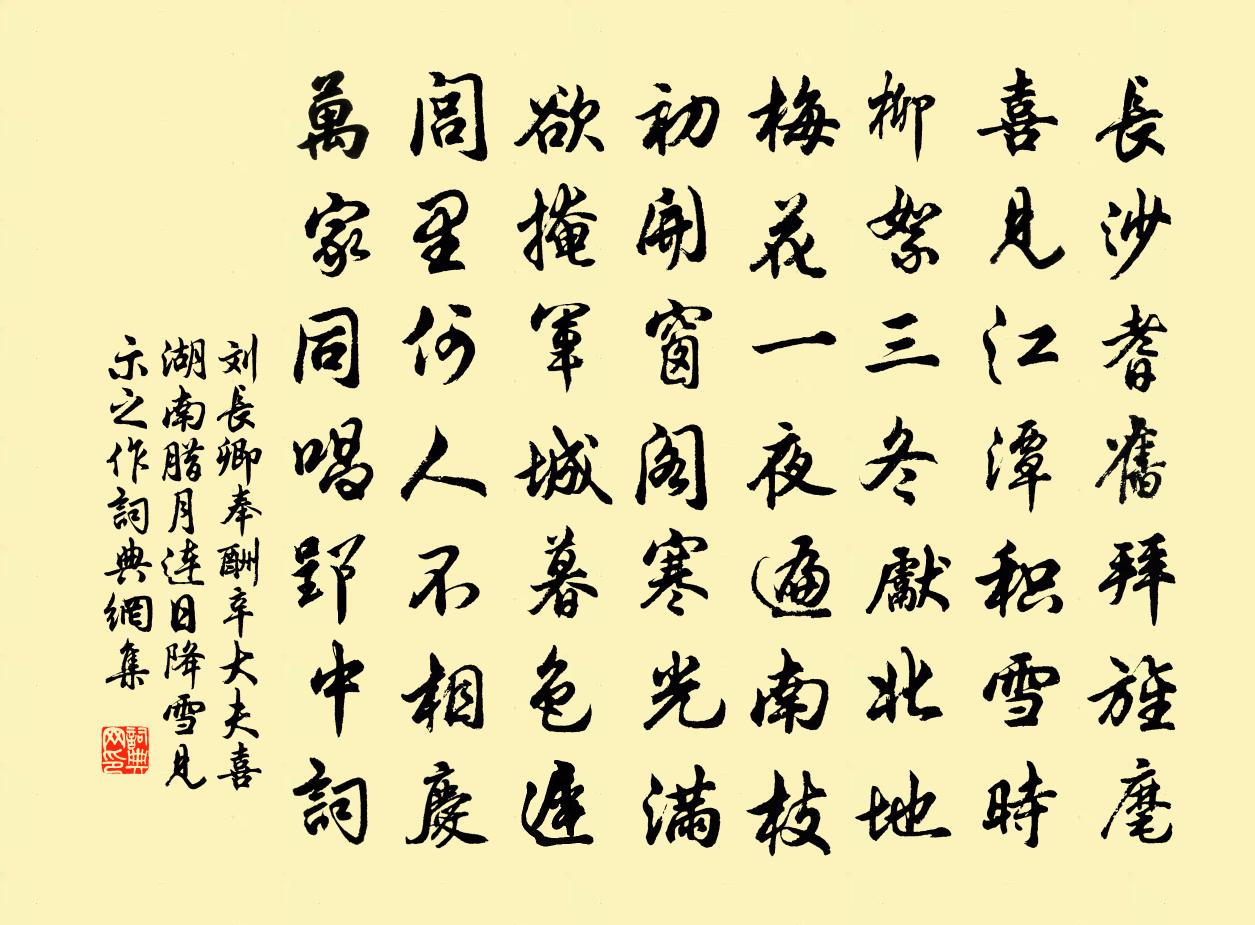 長沙耆舊拜旌麾
喜見江潭积雪時
柳絮三冬獻北地
梅花一夜遍南枝
初開窗閣寒光满
欲掩軍城暮色遲
閭里何人不相慶
萬家同唱郢中詞
刘長卿奉酬辛大夫喜
湖南腊月連日降雪見
示之作詞典網集
詞典网印